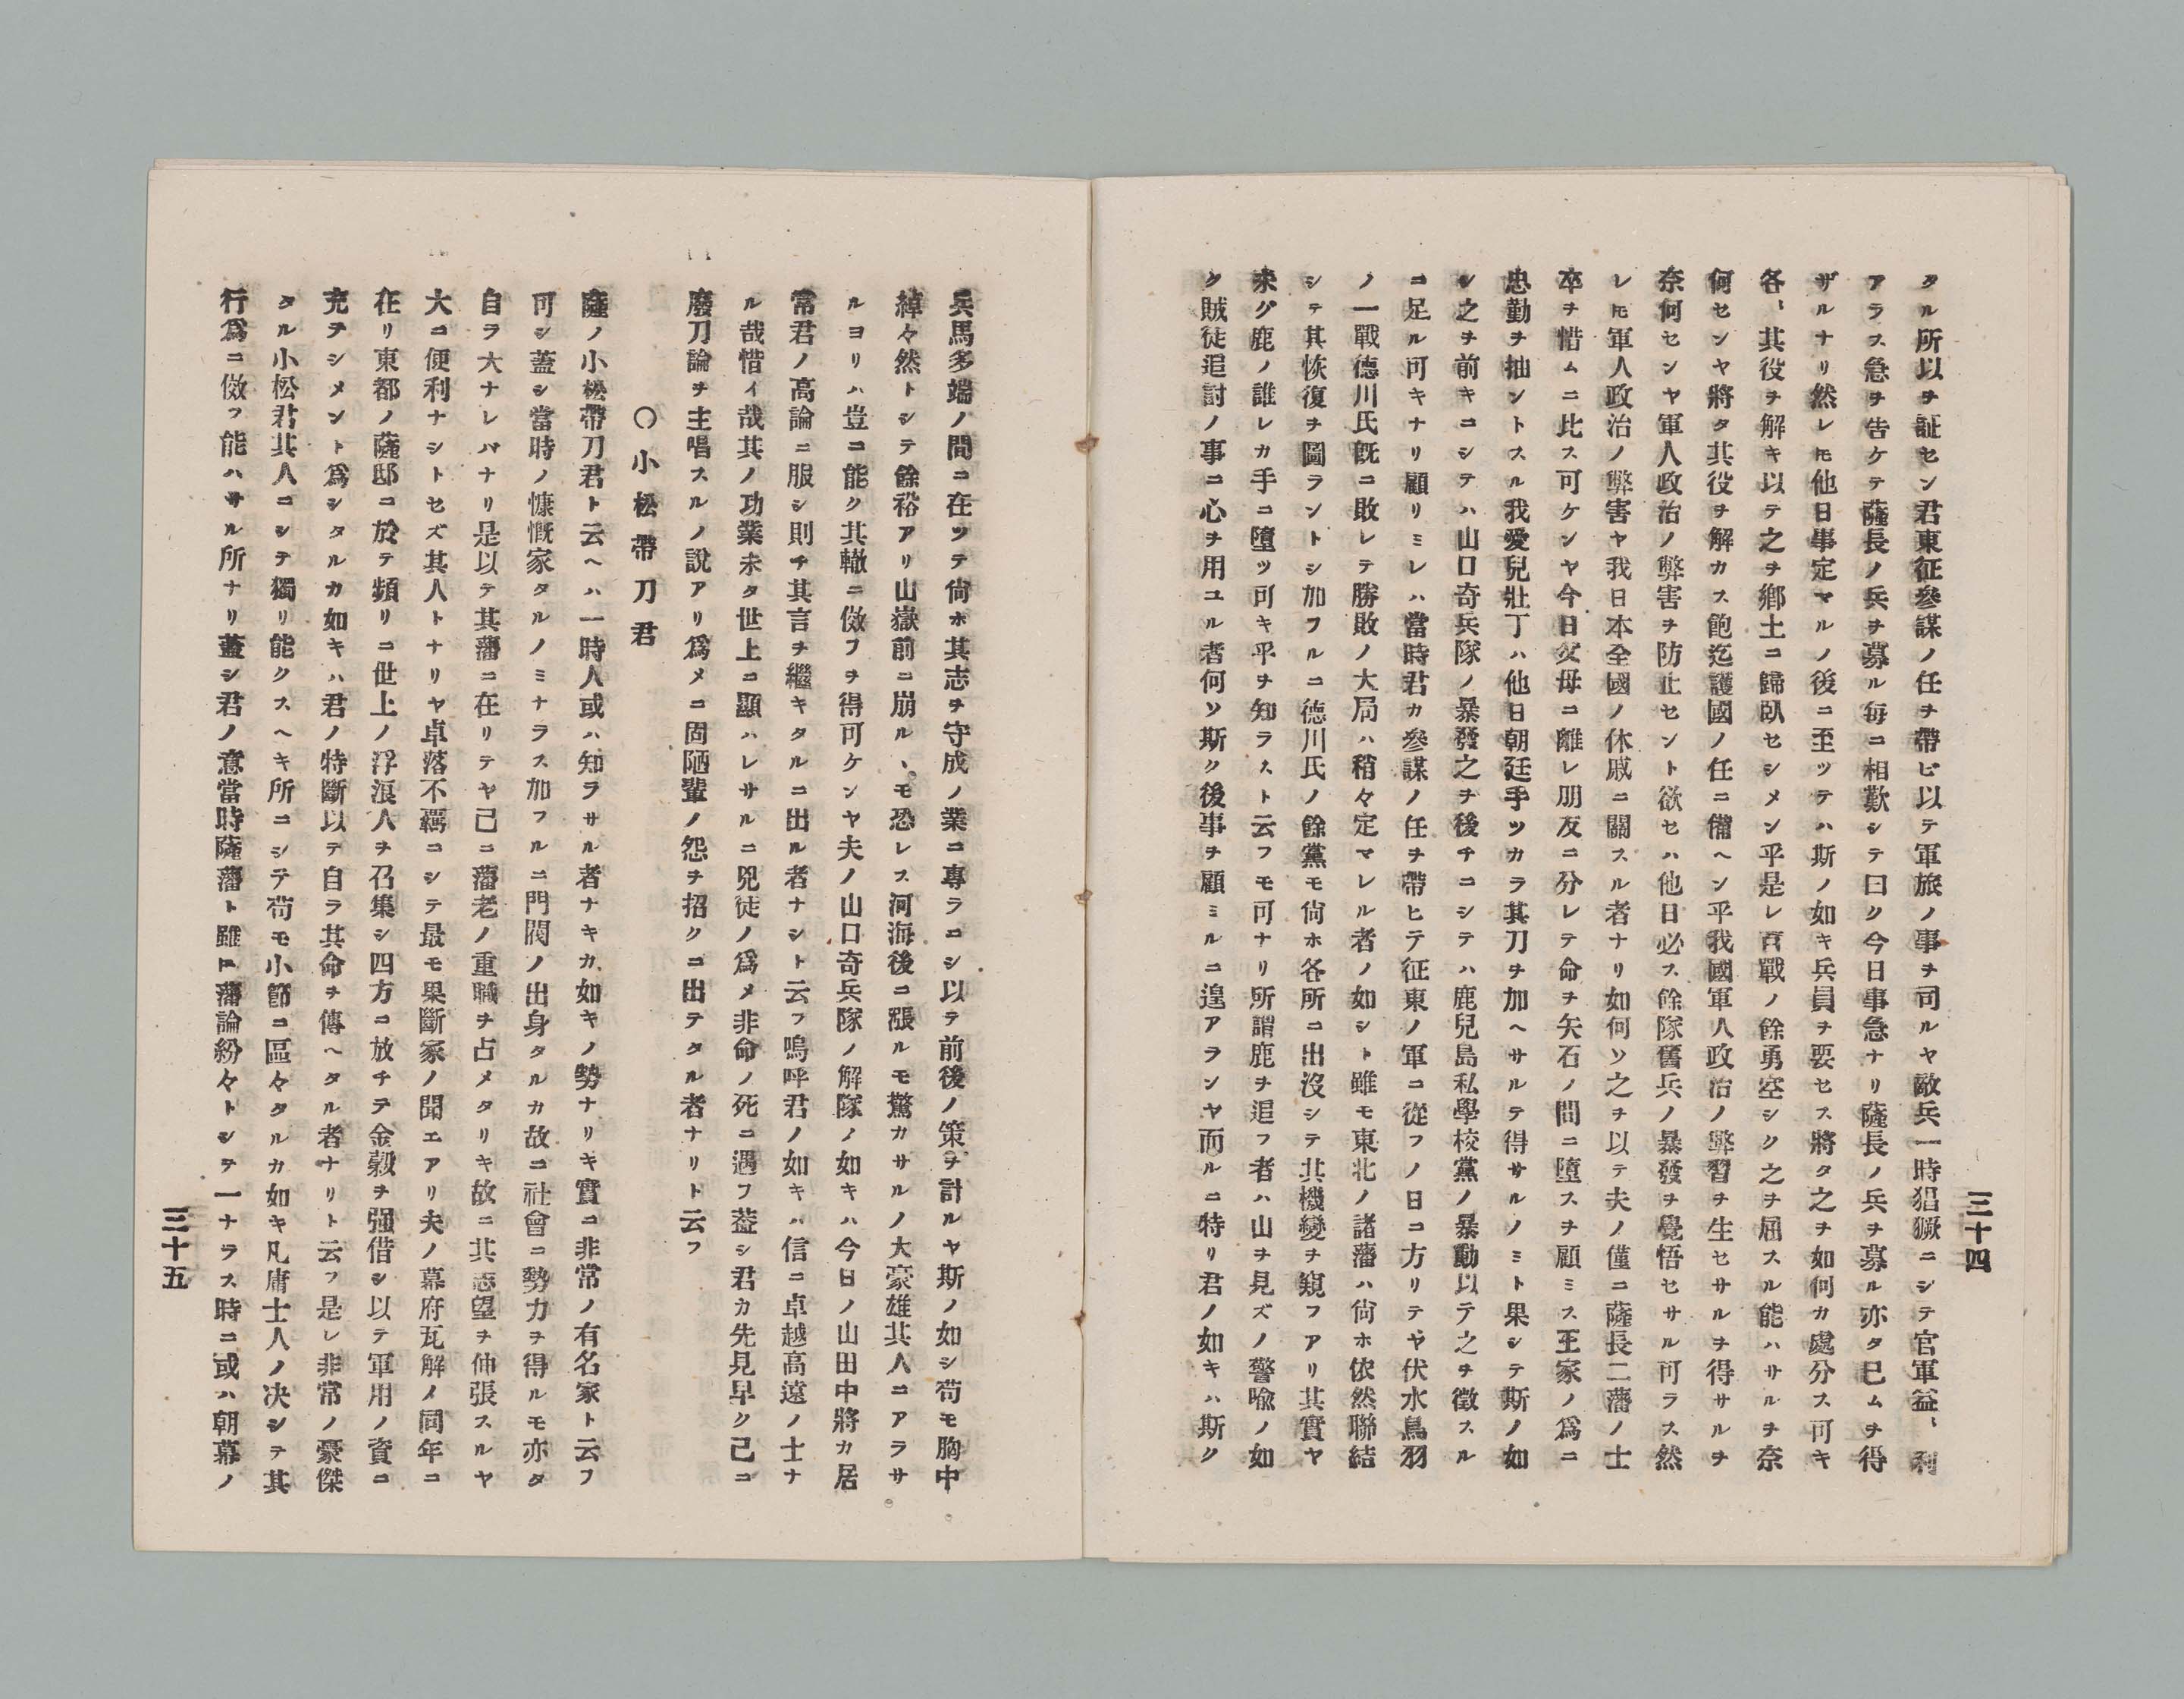 三十四
タル所以ヲ証セン君東征參謀ノ任ヲ帶ビ以テ軍旅ノ事ヲ司ルヤ敵兵一時猖獗ニシテ官軍益〻利
アラス急ヲ告ケテ薩長ノ兵ヲ募ル每ニ相歎シテ曰ク今日事急ナリ薩長ノ兵ヲ募ル亦タ已ムヲ得
ザルナリ然レ𪜈他日事定マルノ後ニ至ツテハ斯ノ如キ兵員ヲ要セス將タ之ヲ如何カ處分ス可キ
各〻其役ヲ解キ以テ之ヲ鄕土ニ歸臥セシメン乎是レ百戰ノ餘勇空シク之ヲ屈スル能ハサルヲ奈
何センヤ將タ其役ヲ解カス飽迄護國ノ任ニ備ヘン乎我國軍人政治ノ弊習ヲ生セサルヲ得サルヲ
奈何センヤ軍人政治ノ弊害ヲ防止セント欲セハ他日必ス餘隊舊兵ノ暴發ヲ覺悟セサル可ラス然
レ𪜈軍人政治ノ弊害ヤ我日本全國ノ休戚ニ關スル者ナリ如何ソ之ヲ以テ夫ノ僅ニ薩長二藩ノ士
卒ヲ惜ムニ比ス可ケンヤ今日父母ニ離レ朋友ニ分レテ命ヲ矢石ノ間ニ墮スヲ顧ミス王家ノ爲ニ
忠勤ヲ抽ントスル我愛兒壯丁ハ他日朝廷手ツカラ其刀ヲ加ヘサルテ得サルノミト果シテ斯ノ如
シ之ヲ前キニシテハ山口奇兵隊ノ暴發之ヲ後チニシテハ鹿兒島私學校黨ノ暴動以テ之ヲ徵スル
ニ足ル可キナリ顧リミレハ當時君カ參謀ノ任ヲ帶ヒテ征東ノ軍ニ從フノ日ニ方リテヤ伏水鳥羽
ノ一戰德川氏旣ニ敗レテ勝敗ノ大局ハ稍々定マレル者ノ如シト雖モ東北ノ諸藩ハ尙ホ依然聯結
シテ其恢復ヲ圖ラントシ加フルニ德川氏ノ餘黨モ尙ホ各所ニ出沒シテ其機變ヲ窺フアリ其實ヤ
未グ鹿ノ誰レカ手ニ墮ツ可キ乎ヲ知ラスト云フモ可ナリ所謂鹿ヲ追フ者ハ山ヲ見ズノ警喩ノ如
ク賊徒追討ノ事ニ心ヲ用ユル者何ソ斯ク後事ヲ顧ミルニ遑アランヤ而ルニ特リ君ノ如キハ斯ク
兵馬多端ノ間ニ在ツテ尙ホ其志ヲ守成ノ業ニ專ラニシ以テ前後ノ策ヲ計ルヤ斯ノ如シ苟モ胸中
綽々然トシテ餘裕アリ山嶽前ニ崩ル、モ恐レス河海後ニ漲ルモ驚カサルノ大豪雄其人ニアラサ
ルヨリハ豈ニ能ク其轍ニ傚フヲ得可ケンヤ夫ノ山口奇兵隊ノ解隊ノ如キハ今日ノ山田中將カ居
常君ノ高論ニ服シ則チ其言ヲ繼キタルニ出ル者ナシト云フ嗚呼君ノ如キハ信ニ卓越高遠ノ士ナ
ル哉惜イ哉其ノ功業未タ世上ニ顯ハレサルニ兇徒ノ爲メ非命ノ死ニ遇フ蓋シ君カ先見早ク已ニ
廢刀論ヲ主唱スルノ說アリ爲メニ固陋輩ノ怨ヲ招クニ出テタル者ナリト云フ
〇小松帶刀君
薩ノ小松帶刀君ト云ヘハ一時人或ハ知ラサル者ナキカ如キノ勢ナリキ實ニ非常ノ有名家ト云フ
可シ蓋シ當時ノ慷慨家タルノミナラス加フルニ門閥ノ出身タルカ故ニ社會ニ勢力ヲ得ルモ亦タ
自ラ大ナレバナリ是以テ其藩ニ在リテヤ己ニ藩老ノ重職ヲ占メタリキ故ニ其志望ヲ伸張スルヤ
大ニ便利ナシトセズ其人トナリヤ卓落不羈ニシテ最モ果斷家ノ聞エアリ夫ノ幕府瓦解ノ同年ニ
在リ東都ノ薩邸ニ於テ頻リニ世上ノ浮浪人ヲ召集シ四方ニ放チテ金穀ヲ强借シ以テ軍用ノ資ニ
充ヲシメント爲シタルカ如キハ君ノ特斷以テ自ラ其命ヲ傳ヘタル者ナリト云フ是レ非常ノ豪傑
タル小松君其人ニシテ獨リ能クスヘキ所ニシテ苟モ小節ニ區々タルカ如キ凡庸士人ノ决シテ其
行爲ニ傚フ能ハサル所ナリ蓋シ君ノ意當時薩藩ト雖𪜈藩論紛々トシテ一ナラス時ニ或ハ朝幕ノ
三十五